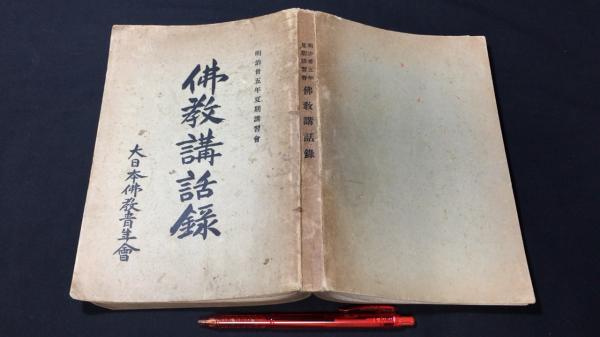 明治廿五年夏期講習會
佛教講話錄
大日本佛教青年會
明治廿五年
夏期講習會
佛教講話錄